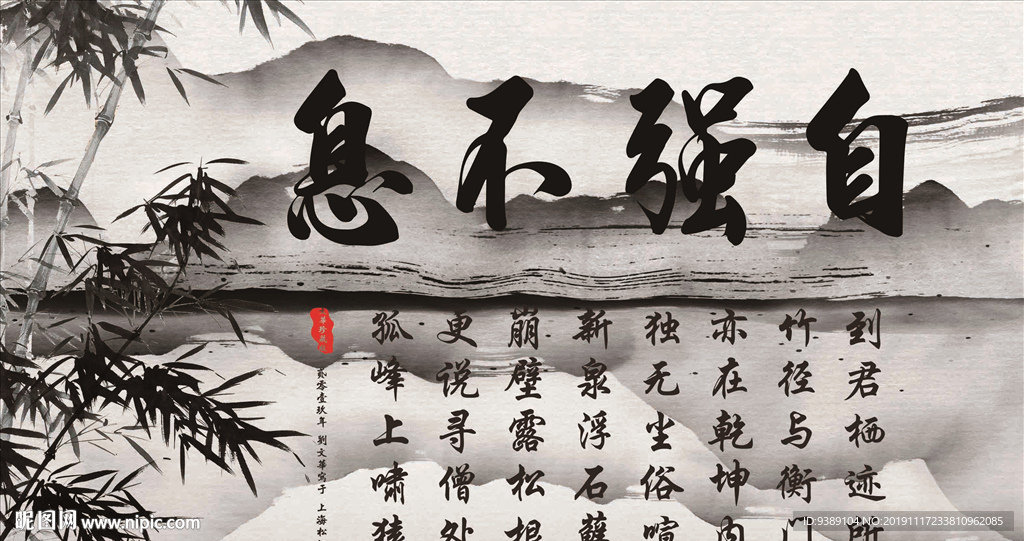 自强不息
到君栖迹所
竹径与衡门
亦在乾坤内
独无尘俗喧
新泉浮石藓
崩壁露松根
更说寻僧处
孤峰上啸猿
贰零壹玖年 刘文華寫于 上海松
昵图网 www.nipic.com
ID:9389104 NO:20191117233810962085